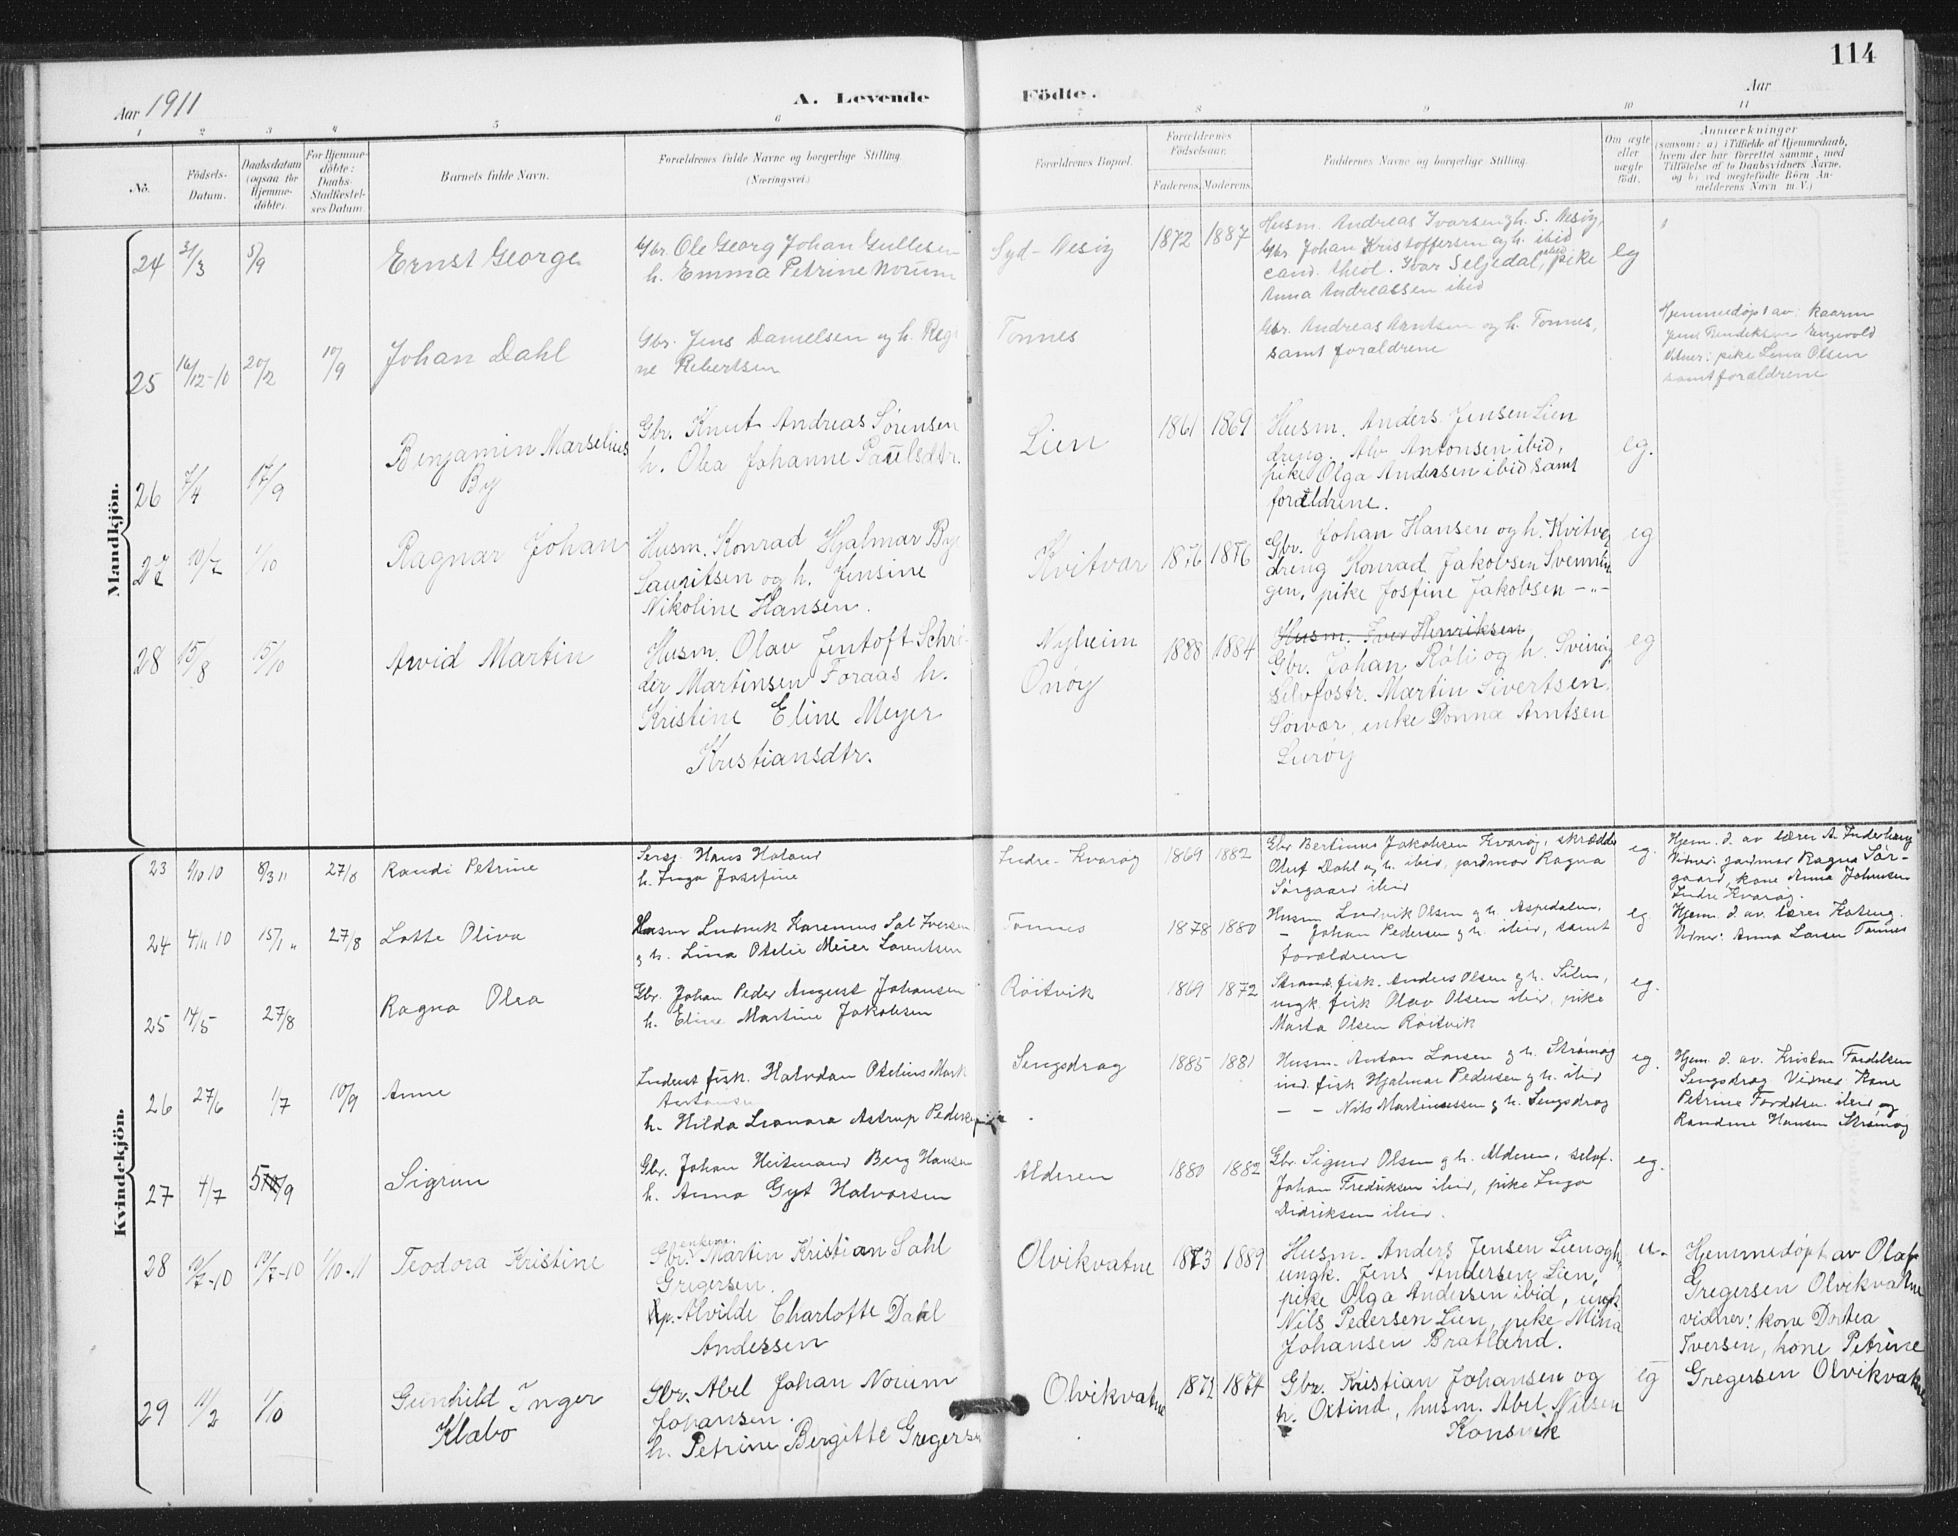 114
Aar 1911
A. Levende
Födte.
Aar
1 2 3 4 5 6 7 8 9 10 11
No.
Födsels-Datum.
Daabsdatum (ogsaa for Hjemmedöbte).
For Hjemmedöbte: Daabs-Stadfæstelses Datum
Barnets fulde Navn.
Forældrenes fulde Navne og borgerlige Stilling (Næringsvei.)
Forældrenes Bopæl.
Forældrenes Födselsaar.
Faderens. Moderens.
Faddernes Navne og borgerlige Stilling.
Om ægte eller uægte födt.
Anmærkninger
(saasom: a) i Tilfælde af Hjemmedaab, hvem der har forrettet samme, med Tilföielse af to Daabsvidners Navne, og b) ved uegtefödte Börn Anmelderens Navn m. V.)
Mandkjön.
24 31/3 3/9 Ernst George
Gbr. Ole Georg Johan Gullesen
h. Emma Petrine Norum
Syd-Nesøy 1872 1887
Husm. Andreas Ivarsen og h. S. Nesøy,
Gbr. Johan Kristoffersen og h. ibid
cand. theol. Ivar Seljedal, pike
Anna Andreassen ibid
eg
25 16/12-10 20/2 10/9 Johan Dahl
Gbr. Jens Danielsen og h. Regi
ne Robertsen
Tonnes
Gbr. Andreas Arntsen og h. Tonnes,
samt forældrene
Hjemmedøpt av
Jens Bendiksen
Vidner: pike Lina Olsen
samt forældrene
26 7/4 17/9 Benjamin Marselius
By
Gbr. Knut Andreas Sørensen
h. Olea Johanne Paulsdtr.
Lien 1861 1869
Husm. Anders Jensen Lien
dreng. Alv Antonsen ibid,
pike Olga Andersen ibid samt
forældrene.
eg.
27 10/7 1/10 Ragnar Johan
Husm. Konrad Hjalmar
Lauritsen og h. Jensine
Nikoline Hansen.
Kvitvar 1876 1876
Gbr. Johan Hansen og h. Kvitver
dreng Konrad Jakobsen Svennin
gen, pike Josfine Jakobsen -"-
eg
28 15/8 15/10 Arvid Martin
Husm. Olav Jentoft Schrö-
der Martinsen Foraas h.
Kristine Eline Meyer
Kristiansdtr.
Nyheim
Onøy
1888 1884
Husm. Iver Henriksen
Gbr. Johan Røli og h. Svinøy
selvfostr. Martin Sivertsen
Solvær, enke Donna Arntsen
Lurøy
eg
Kvindekjön.
23 4/10 10 8/3 11 27/8 Randi Petrine
Sersj. Hans Haland
h. Inga Josefine
Indre-Kvarøy 1869 1882
Gbr Bertinus Jakobsen Kvarøy, skrædder
Oluf Dahl og h. ibid, jordmor Ragna
Sørgaard ibid
eg.
Hjem. d. av lærer A. Inderhaug
Vidner: jordmor Ragna Sør-
gaard, kone Anna Johansen
Indre Kvarøy.
24 4/11 10 15/1 " 27/8 Lotte Oliva
Husm Ludvik Karenus Sal Iversen
og h. Lina Otelie Meier Lorentsen
Tonnes 1878 1880
Husm Ludvik Olsen og h. Aspedalen,
- Johan Pedersen og h. ibid, samt
forældrene
eg
Hjem. d. av lærer
Vidner: Anna Larsen Tonnes
25 14/5 27/8 Ragna Olea
Gbr. Johan Peder August Johansen
h. Eline Martine Jakobsen
Røitvik 1869 1872
Strand. fisk. Anders Olsen og h. Silen,
ungk. fisk Olav Olsen ibid, pike
Marta Olsen Røitvik
eg.
26 27/6 1/7 10/9 Anne
Inderst fisk. Halvdan Otelius Mark
Antonsen
h. Hilda Leonora Astrup
Sengsdrag 1885 1881
Husm. Anton Larsen og h. Strømøy
ind. fisk Hjalmar Pedersen og h. ibid
- - Nils Martinussen og h. Sengsdrag
eg.
Hjem. d. av. Kristen Fredriksen
Sengsdrag Vidner Kone
Petrine Fredriksen ibid og
Randine Hansen Strømøy
27 4/7 /9 Sigrun
Gbr. Johan Heitmand Berg Hansen
h. Anna Gyt Halvorsen
Alderen 1880 1882
Gbr. Sigurd Olsen og h. Alderen, selvf.
Johan Fredriksen ibid, pike Inga
Didriksen ibid.
eg.
28 12/7-10 13/7-10 1/10-11 Teodora Kristine
Gbr. enkem. Martin Kristian Dahl
Gregersen.
Alvilde Charlotte Dahl
Andersen
Olvikvatne 1873 1889
Husm. Anders Jensen Lien og h.
ungk. Jens Andersen Lien,
pike Olga Andersen ibid, ungk.
Nils Pedersen Lien, pike Mina
Johansen Bratland.
u.
Hjemmedøpt av Olaf
Gregersen Olvikvatne
vidner: kone Dortea
Iversen, kone Petrine
Gregersen Olvikvatne
29 11/2 1/10 Gunhild Inger
Klabo
Gbr. Abel Johan Norum
Johansen.
h. Petrine Bergitte Gregersen
Olvikvatne 1872 1874
Gbr. Kristian Johansen og
h. Oxtind, husm. Abel Nilsen
Konsvik
eg